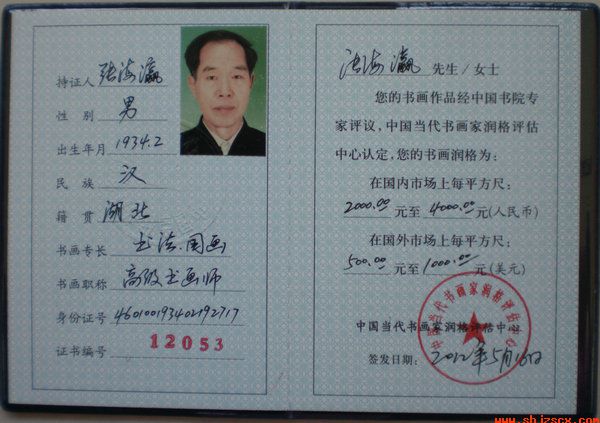 持证人 张海瀛
性 别 男
出生年月 1934.2
民 族 汉
籍 贯 湖北
书画专长 书法.国画
书画职称 高级书画师
身份证号 460100193402192717
证书编号 12053
张海瀛 先生/女士
您的书画作品经中国书院专
家评议,中国当代书画家润格评估
中心认定,您的书画润格为:
在国内市场上每平方尺:
2000.00 元至 4000.00 元(人民币)
在国外市场上每平方尺:
500.00 元至 1000.00 元(美元)
中国当代书画家润格评估中心
中国当代书画家润格评估中心
签发日期: 2012年5月16日
www.shjzscx.com